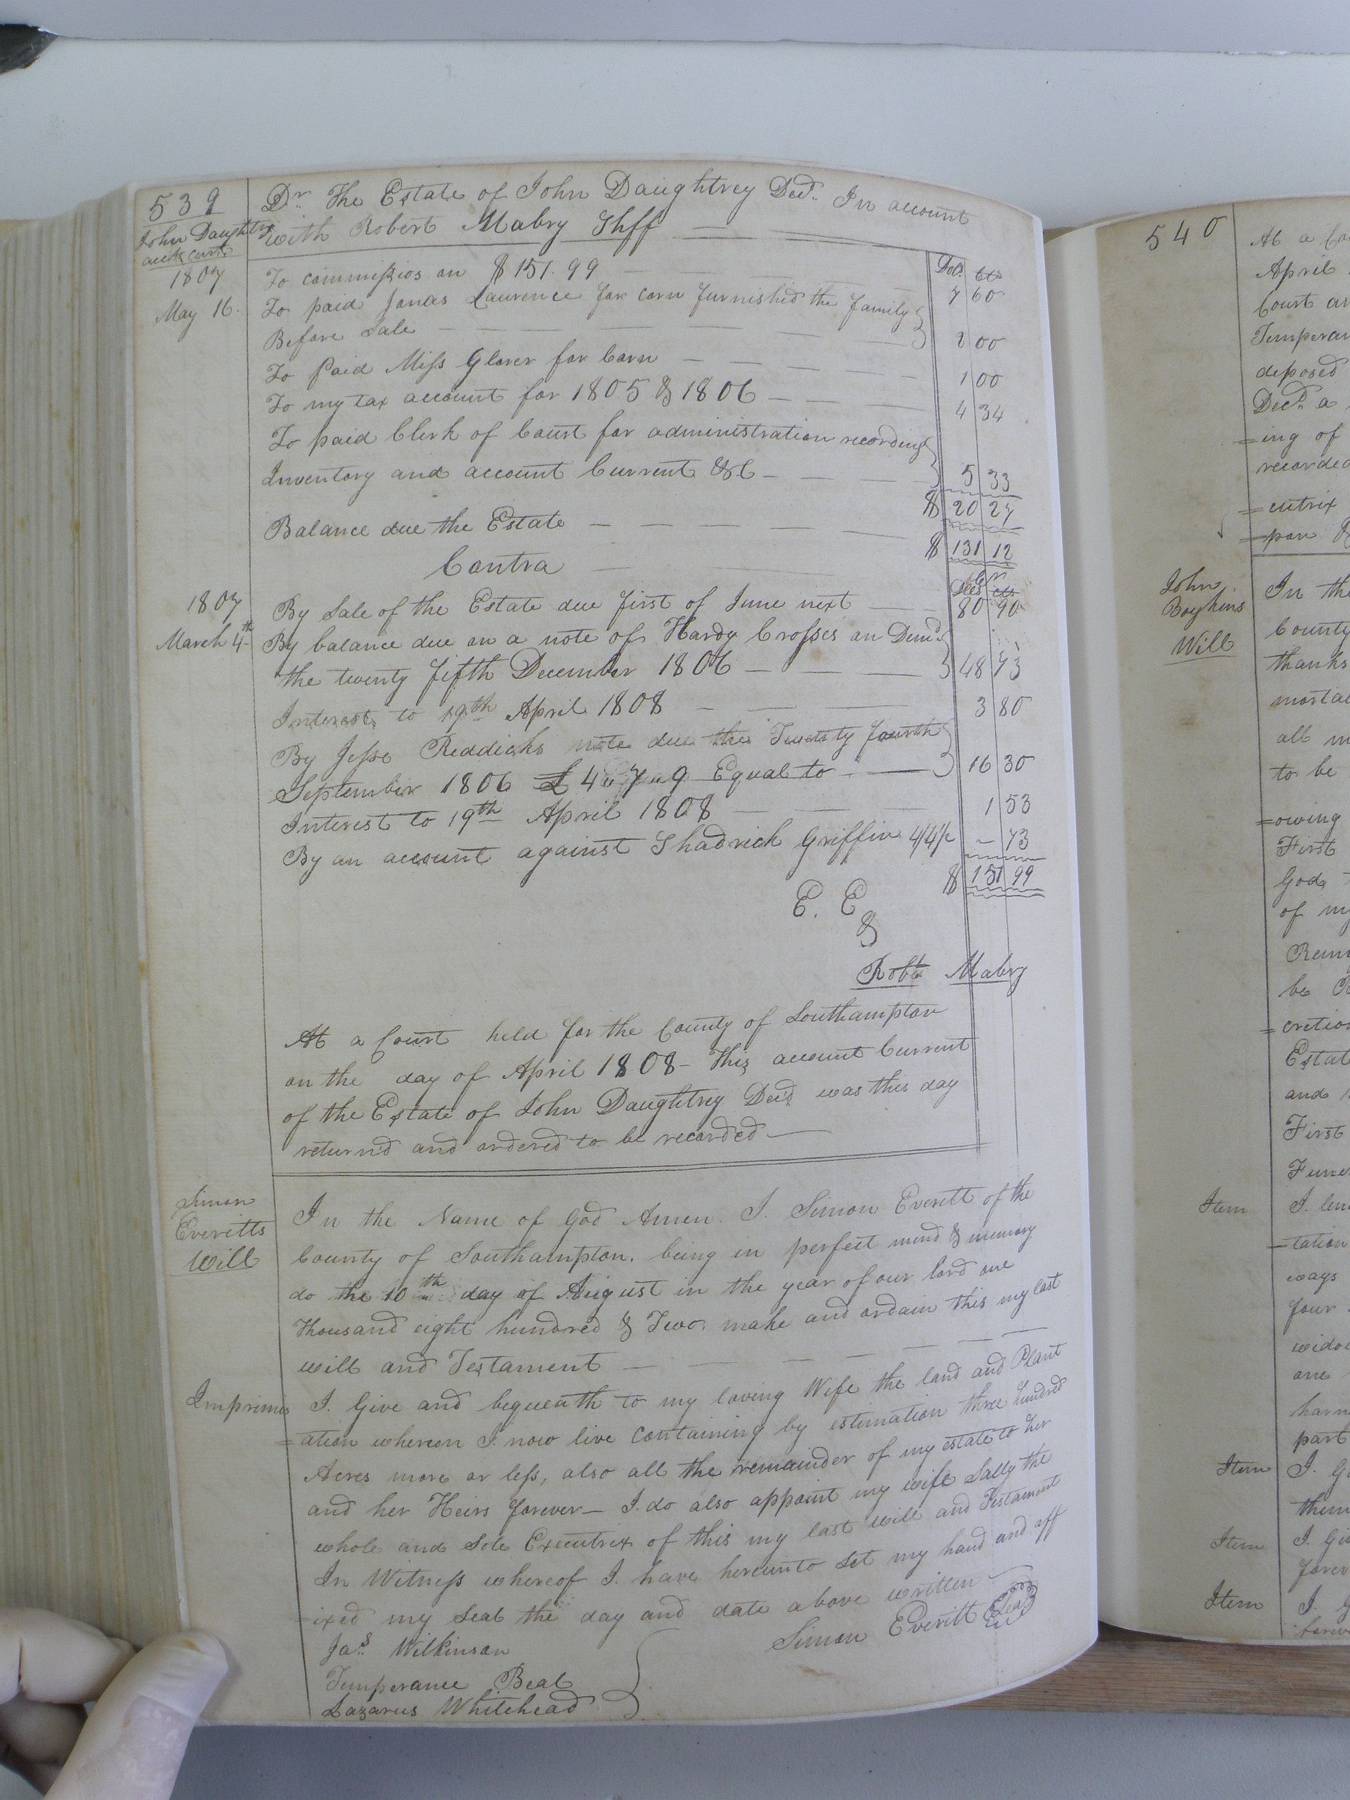 539
John Daughtry
acct. curt.
Dr. The Estate of John Daughtrey Decd. In account
with Robert Mabry Shff
Dol. Cts
1807 To commission on $151.99 7 60
May 16. To paid Jonas Laurence for corn furnished the family
Before Sale 2 00
To Paid Miss Glover for Corn 1 00
To my tax account for 1805 & 1806 4 34
To paid Clerk of Court for administration recording
Inventory and account Current &C 5 33
$ 20 27
Balance due the Estate $ 131 12
Contra Cr
Dols cts
1807 By Sale of the Estate due first of June next 80 90
March 4th By balance due on a note of Hardy Crosses on Demd
the twenty fifth December 1806 48 73
Interest to 19th April 1808 3 80
By Jesse Reddicks note due the Twenty fourth
September 1806 £ 4 " 7 " 9 Equal to 16 30
Interest to 19th April 1808 1 53
By an account against Shadrick Griffin 4/4½ - 73
$ 151 99
E. E
&
Robt. Mabry
At a Court held for the County of Southampton
on the day of April 1808 - This account Current
of the Estate of John Daughtrey Decd. was this day
returnd and ordered to be recorded
Simon
Everitts
Will
In the Name of God Amen. I. Simon Everitt of the
County of Southampton. being in perfect mind & memory
do the 10th day of August in the year of our lord one
thousand eight hundred & Two. make and ordain this my last
will and Testament
Imprimis I. Give and bequeath to my loving Wife the land and Plant
=ation whereon I now live containing by estimation three hundred
Acres more or less, also all the remainder of my estate to her
and her Heirs forever - I. do also appoint my wife Sally the
whole and Sole Executrix of this my last will and Testament
In Witness whereof I. have hereunto set my hand and aff
=ixed my Seal the day and date above written
Simon Everitt Seal
Jas. Wilkinson
Temperance Beal
Lazarus Whitehead
540
At a Co
April
Court an
Temperan
deposed
Decd. a
=ing of
recorded
=cutrix
John
Boykins
Will
In the
County
thanks
mortal
all m
to be
=owing
First
God,
of my
Rem
be
=cretion
Estat
and
First
Fune
Item I. len
=tation
ways
four
widow
one
harn
part
Item I. G
them
Item I. Gi
forev
Item I. G